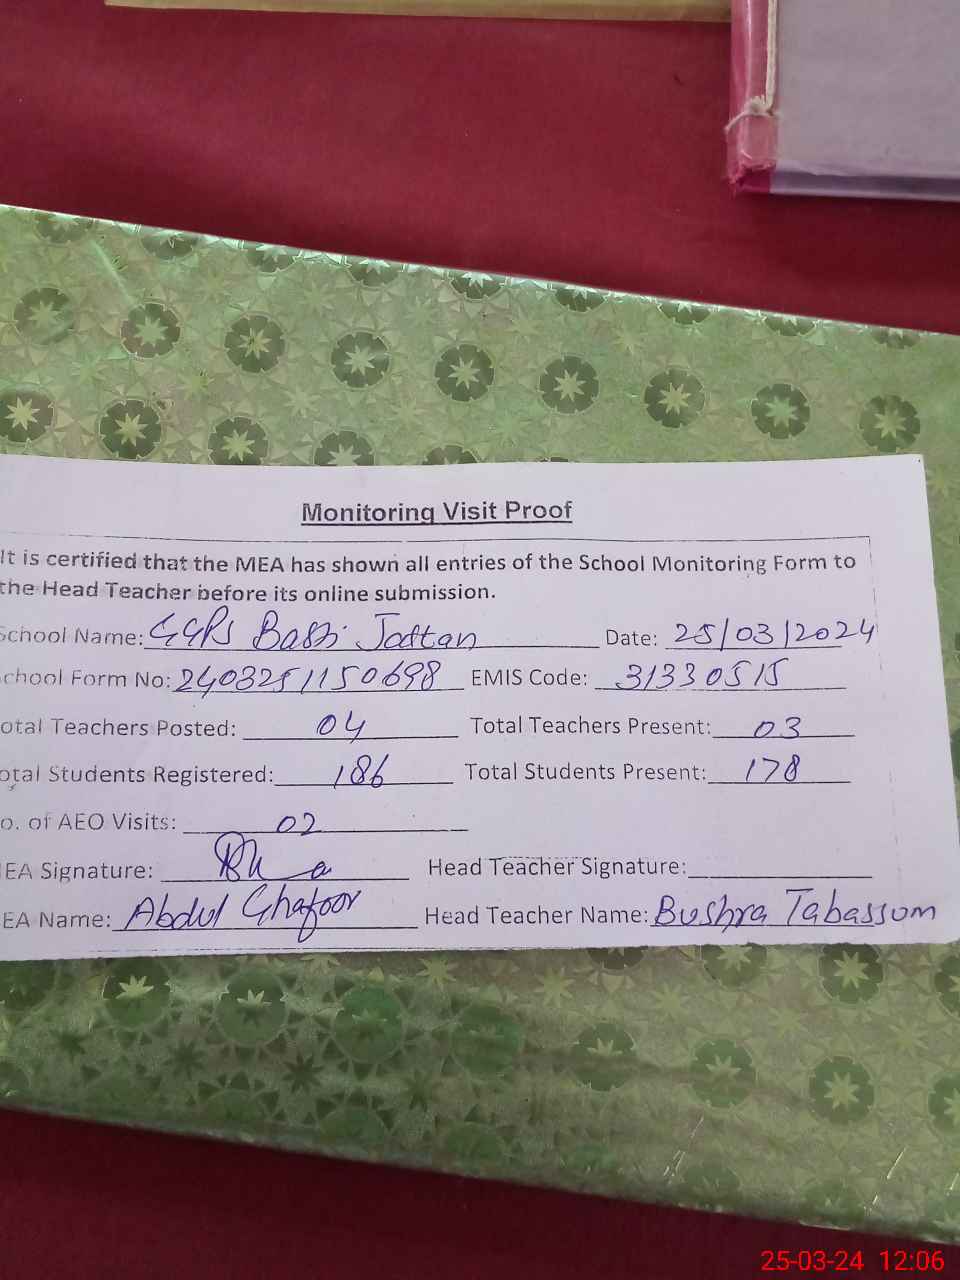 Monitoring Visit Proof
It is certified that the MEA has shown all entries of the School Monitoring Form to
the Head Teacher before its online submission.
School Name: GGPS Basti Jattan Date: 25/03/2024
chool Form No: 2403251150698 EMIS Code: 31330515
otal Teachers Posted: 04 Total Teachers Present: 03
otal Students Registered: 186 Total Students Present: 178
o. of AEO Visits: 02
EA Signature: Head Teacher Signature:
EA Name: Abdul Ghafoor Head Teacher Name: Bushra Tabassum
25-03-24 12:06